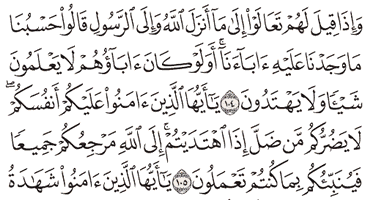 وَإِذَا قِيلَ لَهُمْ تَعَالَوْا۟ إِلَىٰ مَآ أَنزَلَ ٱللَّهُ وَإِلَى ٱلرَّسُولِ قَالُوا۟ حَسْبُنَا
مَا وَجَدْنَا عَلَيْهِ ءَابَآءَنَآ ۚ أَوَلَوْ كَانَ ءَابَآؤُهُمْ لَا يَعْلَمُونَ
شَيْـًٔا وَلَا يَهْتَدُونَ ١٠٤ يَـٰٓأَيُّهَا ٱلَّذِينَ ءَامَنُوا۟ عَلَيْكُمْ أَنفُسَكُمْ ۖ
لَا يَضُرُّكُم مَّن ضَلَّ إِذَا ٱهْتَدَيْتُمْ ۚ إِلَى ٱللَّهِ مَرْجِعُكُمْ جَمِيعًا
فَيُنَبِّئُكُم بِمَا كُنتُمْ تَعْمَلُونَ ١٠٥ يَـٰٓأَيُّهَا ٱلَّذِينَ ءَامَنُوا۟ شَهَـٰدَةُ